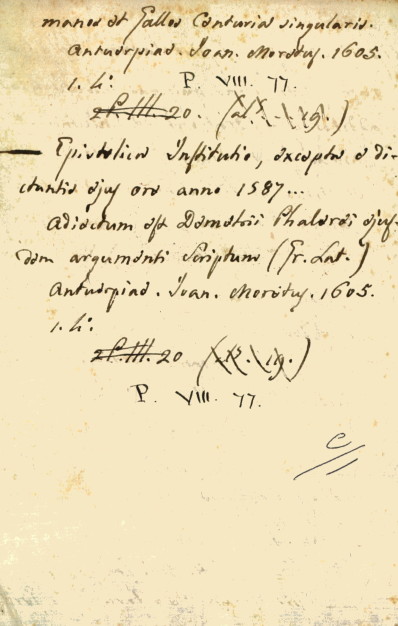 manos et Gallos Centuria singularis.
Antuerpiae. Ioan. Moretus. 1605.
1. 4°.
P. VIII. 77.
P. III. 20. (al. XIX. 19.)
— Epistolica Institutio, excepta e di-
ctantis ejus ore anno 1587...
Adiectum est Demetrii Phalerei ejus-
dem argumenti Scriptum (Gr. Lat.)
Antuerpiae. Ioan. Moretus. 1605.
1. 4°.
P. III. 20 (XIX. 19.)
P. VIII. 77.